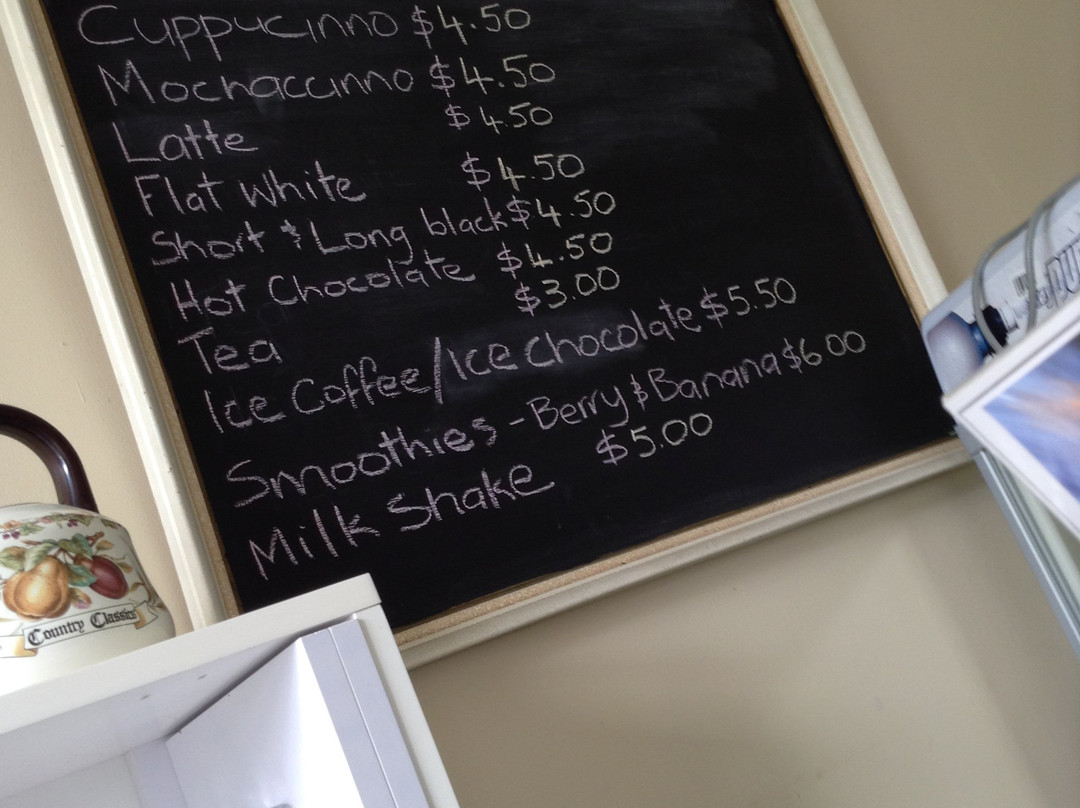 Cuppucinno $4.50
Mochaccinno $4.50
Latte $4.50
Flat White $4.50
Short & Long black $4.50
Hot Chocolate $4.50
Tea $3.00
Ice Coffee/Ice Chocolate $5.50
Smoothies - Berry & Banana $6.00
Milk Shake $5.00
Country Classics